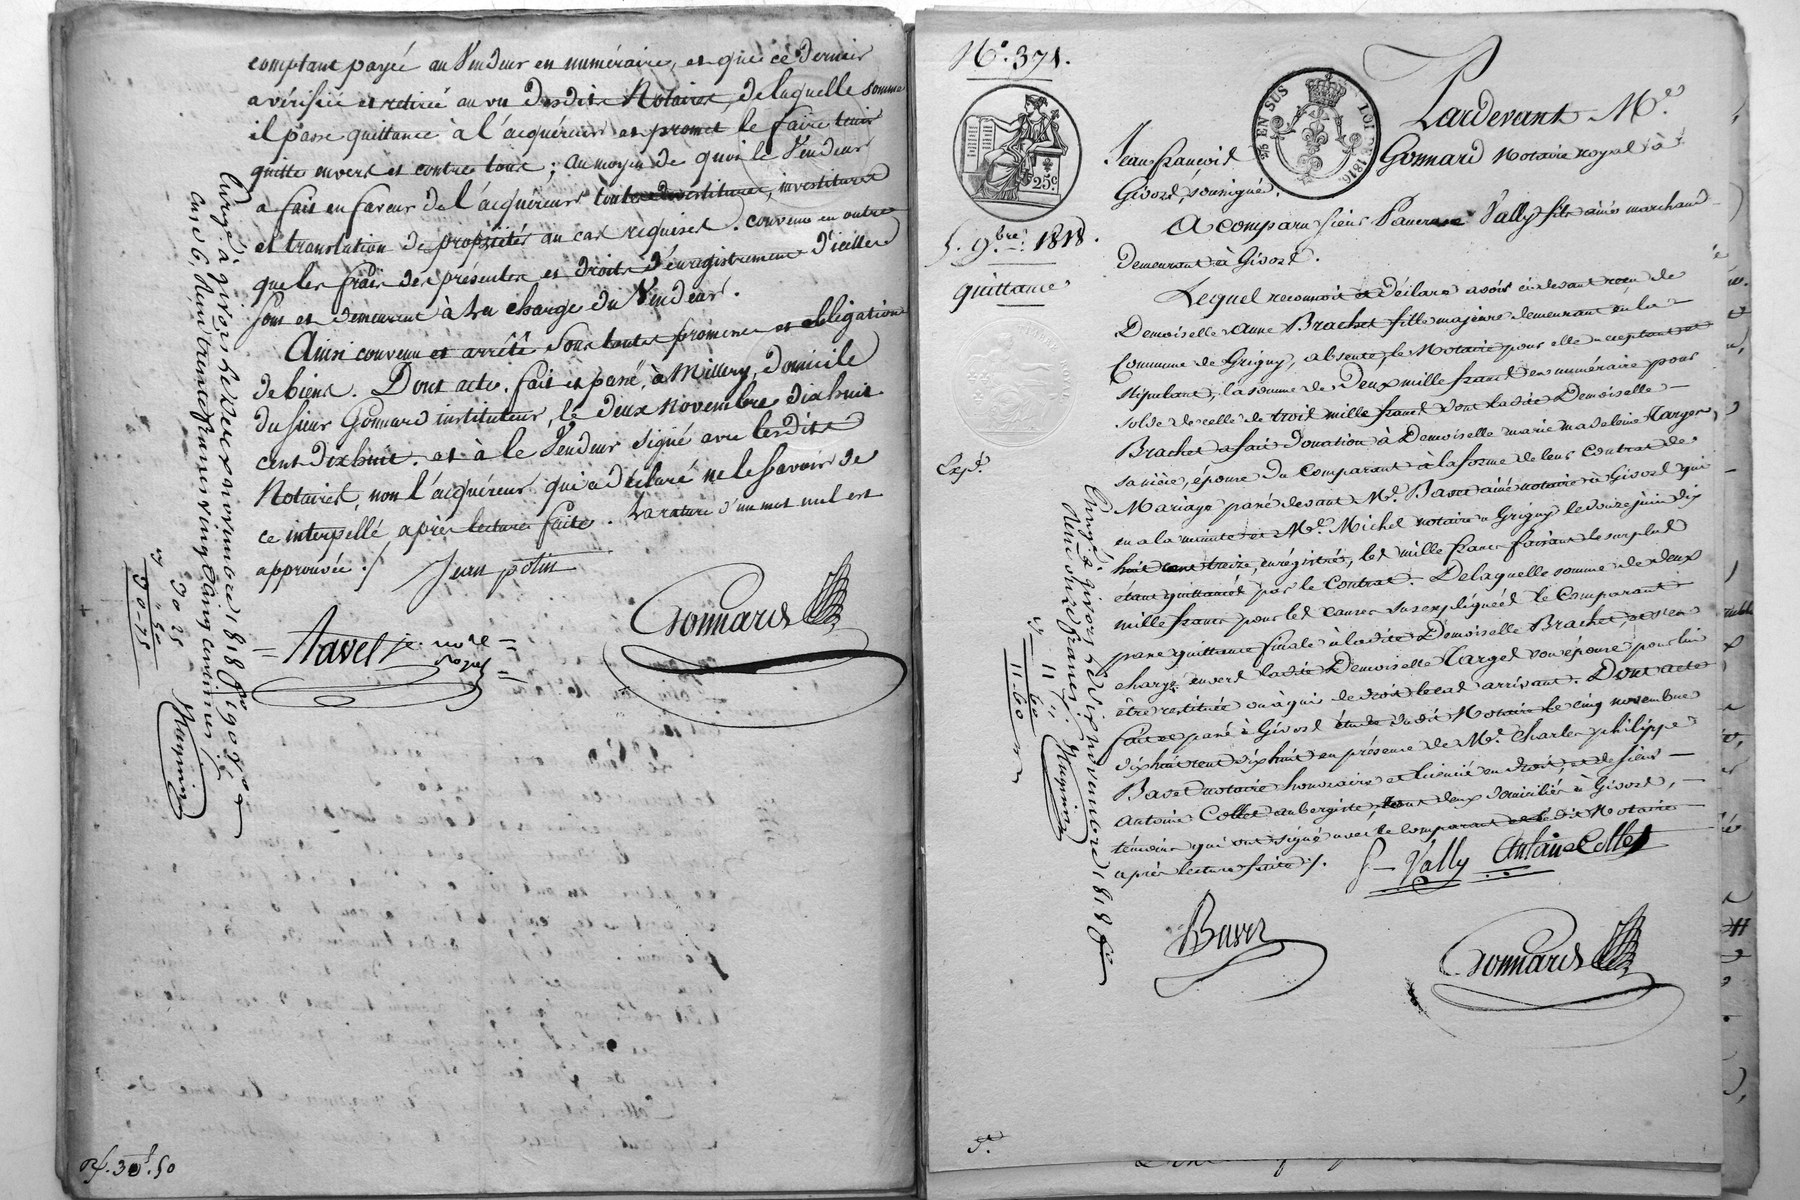 comptant payée au Vendeur en numéraire, et que ce dernier
a vérifiée et retirée au vu desdits Notaires, de laquelle somme
il passe quittance à l'acquéreur et promet le faire tenir
quitte envers et contre tous ; au moyen de quoi le Vendeur
a fait en faveur de l'acquéreur toutes devestitures, investitures
et translation de propriétés au cas requises. convenu en outre
que les frais des présentes et droits d'enregistrement d'icelles
sont et demeurent à la charge du Vendeur.
Ainsi convenu et arrêté sous toutes promesses et obligation
de biens. Dont acte. fait et passé, à Millery, domicile
du sieur Gonnard instituteur, le deux novembre dixhuit
cent dixhuit. et à le Vendeur signé avec lesdits
Notaires, non l'acquéreur qui a déclaré ne le savoir de
ce interpellé après lecture faite. La rature d'un mot nul est
approuvée ./
Jean potin
Gonnard
= Tavel je. no.re =
royal =
Enrg.é à givors le deux novembre 1818 f.o 190
Cas 6,
trente francs vingt cinq centimes /.
30 25
" 50
30-75
Mugnin
30f.50
N.o 371.
5. 9.bre 1818.
quittance
Exp.é
25 EN SUS
LOI DE 1816
25c
Pardevant M.e
Jean françois Gonnard Notaire royal à
Givors, soussigné.
A comparu sieur Pancrace Vally fils ainé marchand
Demeurant à Givors.
Lequel reconnoit et déclare avoir ci devant reçu de
Demoiselle anne Brachet fille majeure demeurant en la
Commune de Grigny, absente, le Notaire pour elle acceptant et
stipulant, la somme de Deux mille francs en numéraire pour
solde de celle de trois mille francs dont ladite Demoiselle
Brachet a fait donation à Demoiselle marie madeleine Targes,
sa nièce, épouse du comparant à la forme de leur Contrat de
Mariage passé devant M.e Bavet ainé notaire à Givors qui
en a la minute et M.e Michel notaire à Grigny le douze juin dix
huit cent treize, enrégistrés, les mille francs faisant le surplus
étant quittancés par le Contrat. De laquelle somme de deux
mille francs pour les causes sus expliquées le Comparant
passe quittance finale à ladite Demoiselle Brachet, et s'en
charge envers ladite Demoiselle Targes son épouse pour lui
être restituée ou à qui de droit le cas arrivant. Dont acte
fait et passé à Givors étude dudit Notaire le cinq novembre
dixhuit cent dixhuit en présence de M.e Charles philippe
Bavet notaire honoraire et licencié en droit, et de sieur
Antoine Collet aubergiste, tous deux domiciliés à Givors,
témoins qui ont signé avec le comparant et ledit Notaire
après lecture faite ./.
P. Vally Antoine Collet
Bavet
Gonnard
Enrg.é à givors le dix novembre 1818 f.o
onze francs.
11 "
" 60
11-60
Mugnin